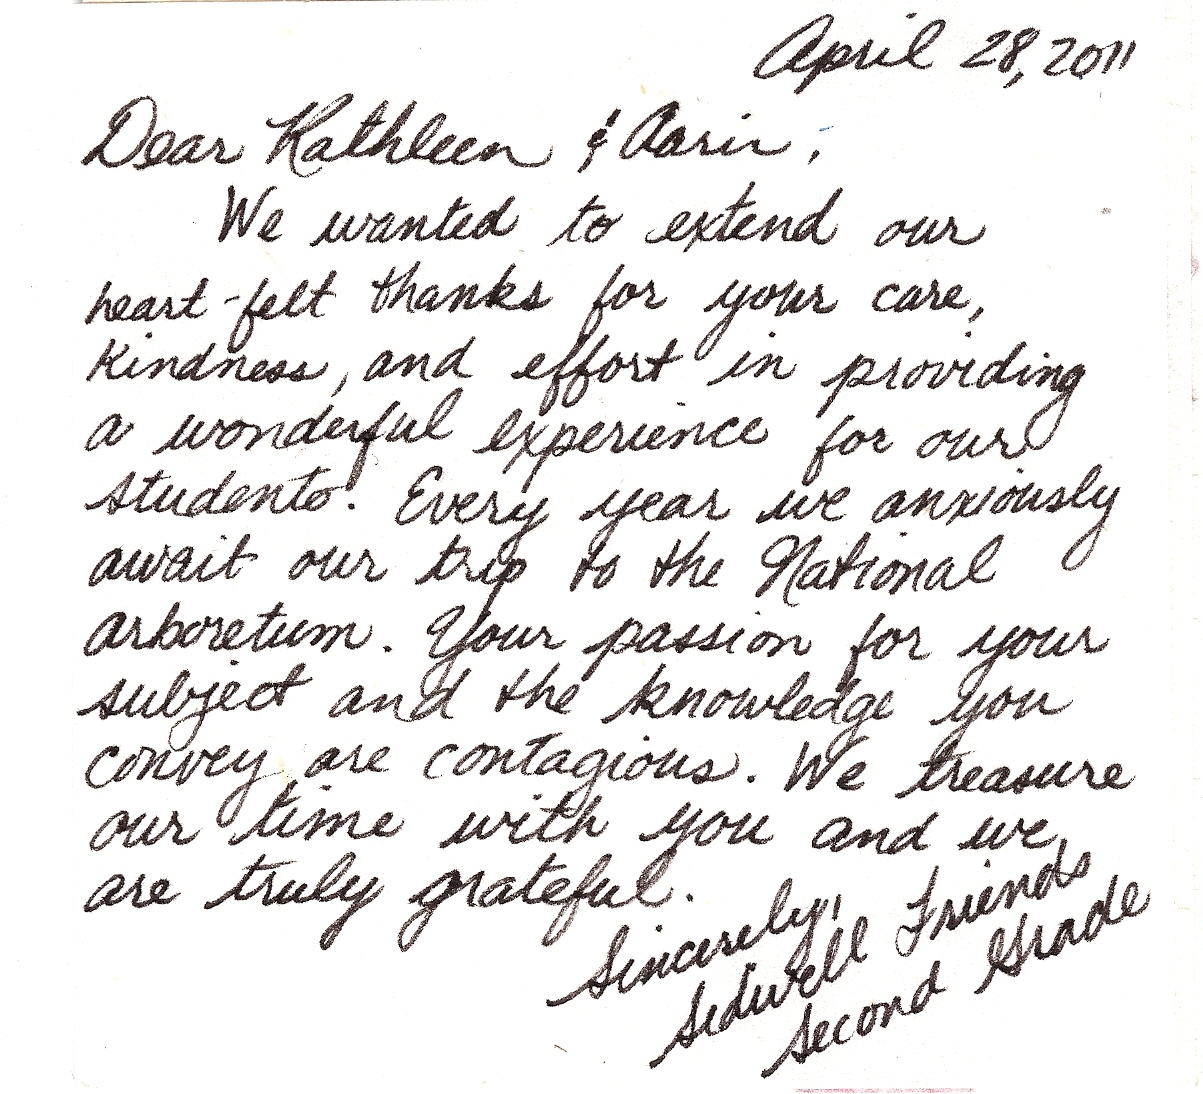 April 28, 2011
Dear Kathleen & Aarin,
We wanted to extend our
heart-felt thanks for your care,
kindness, and effort in providing
a wonderful experience for our
students. Every year we anxiously
await our trip to the National
arboretum. Your passion for your
subject and the knowledge you
convey are contagious. We treasure
our time with you and we
are truly grateful.
Sincerely,
Sidwell Friends
Second Grade